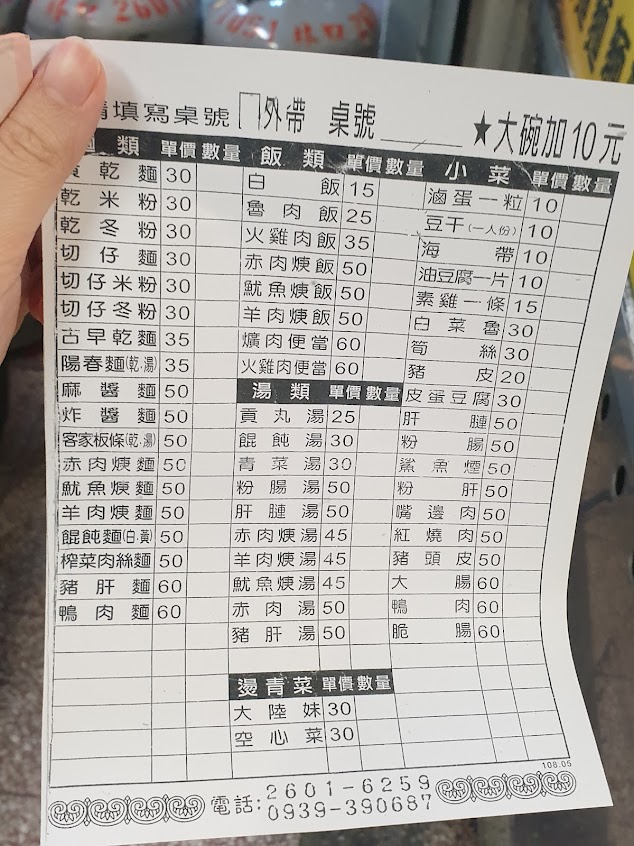 請填寫桌號 外帶 桌號 ★大碗加10元
麵類 單價 數量
黃乾麵 30
乾米粉 30
乾冬粉 30
切仔麵 30
切仔米粉 30
切仔冬粉 30
古早乾麵 35
陽春麵(乾.湯) 35
麻醬麵 50
炸醬麵 50
客家板條(乾.湯) 50
赤肉焿麵 50
魷魚焿麵 50
羊肉焿麵 50
餛飩麵(白.黃) 50
榨菜肉絲麵 50
豬肝麵 60
鴨肉麵 60
飯類 單價 數量
白飯 15
魯肉飯 25
火雞肉飯 35
赤肉焿飯 50
魷魚焿飯 50
羊肉焿飯 50
爌肉便當 60
火雞肉便當 60
湯類 單價 數量
貢丸湯 25
餛飩湯 30
青菜湯 30
粉腸湯 50
肝腱湯 50
赤肉焿湯 45
羊肉焿湯 45
魷魚焿湯 45
赤肉湯 50
豬肝湯 50
燙青菜 單價 數量
大陸妹 30
空心菜 30
小菜 單價 數量
滷蛋一粒 10
豆干(一人份) 10
海帶 10
油豆腐一片 10
素雞一條 15
白菜魯 30
筍絲 30
豬皮 20
皮蛋豆腐 30
肝腱 50
粉腸 50
鯊魚煙 50
粉肝 50
嘴邊肉 50
紅燒肉 50
豬頭皮 50
大腸 60
鴨肉 60
脆腸 60
108.05
電話:2601-6259
0939-390687